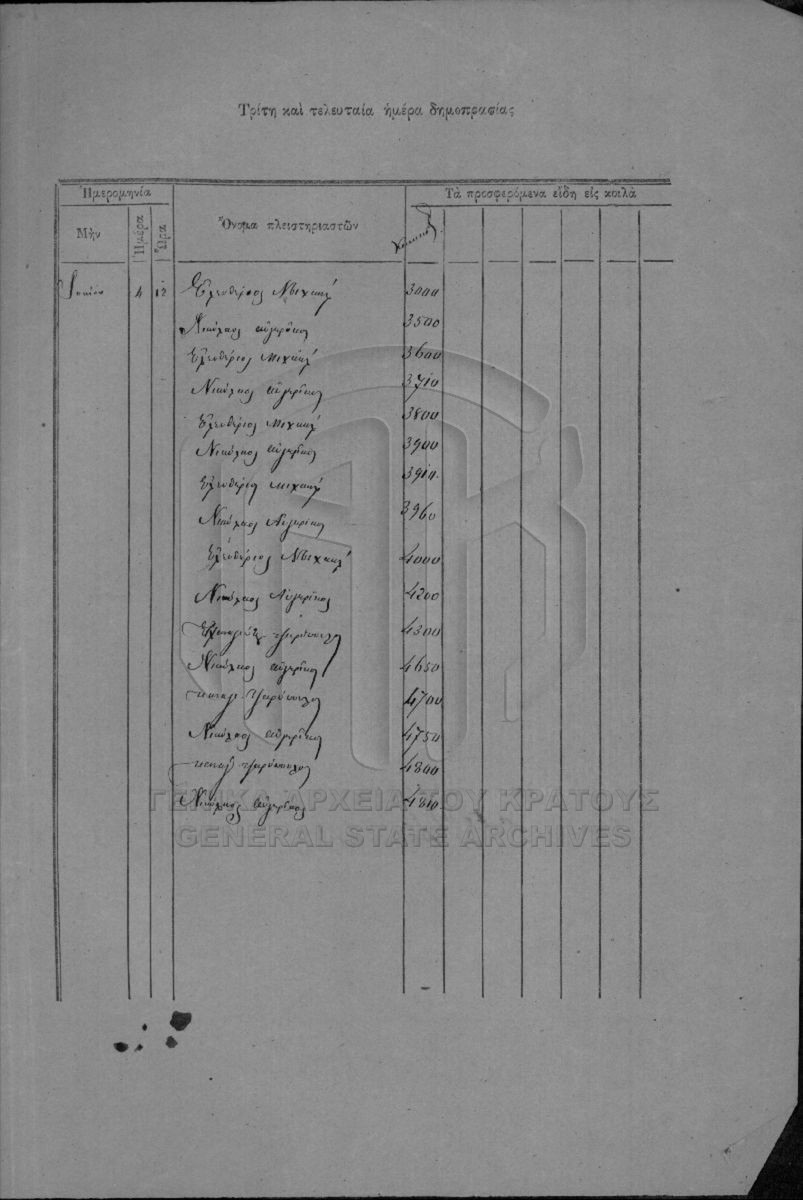 Τρίτη καὶ τελευταία ἡμέρα δημοπρασίας
Ἡμερομηνία
Τὰ προσφερόμενα εἴδη εἰς κοιλὰ
Μὴν
Ἡμέρα
Ὥρα
Ὄνομα πλειστηριαστῶν
Ἰουνίου 4 12 Ἐλευθέριος Μιχαὴλ 3000
Νικόλαος Αὐγερῖνος 3500
Ἐλευθέριος Μιχαὴλ 3600
Νικόλαος Αὐγερῖνος 3710
Ἐλευθέριος Μιχαὴλ 3800
Νικόλαος Αὐγερῖνος 3900
Ἐλευθέριος Μιχαὴλ 3910
Νικόλαος Αὐγερῖνος 3960
Ἐλευθέριος Μιχαὴλ 4000
Νικόλαος Αὐγερῖνος 4200
4300
Νικόλαος Αὐγερῖνος 4650
4700
Νικόλαος Αὐγερῖνος 4750
4800
Νικόλαος Αὐγερῖνος 4810
ΓΕΝΙΚΑ ΑΡΧΕΙΑ ΤΟΥ ΚΡΑΤΟΥΣ
GENERAL STATE ARCHIVES